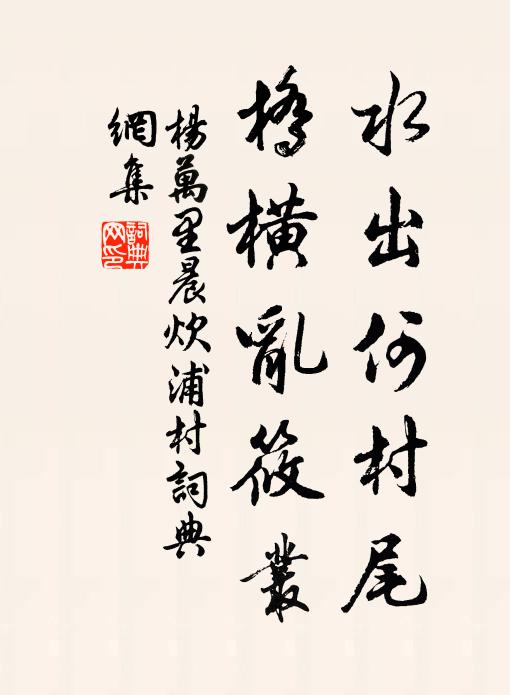 水出何村尾
橋橫亂筱叢
楊萬里晨炊浦村詞典
網集
詞典
网印